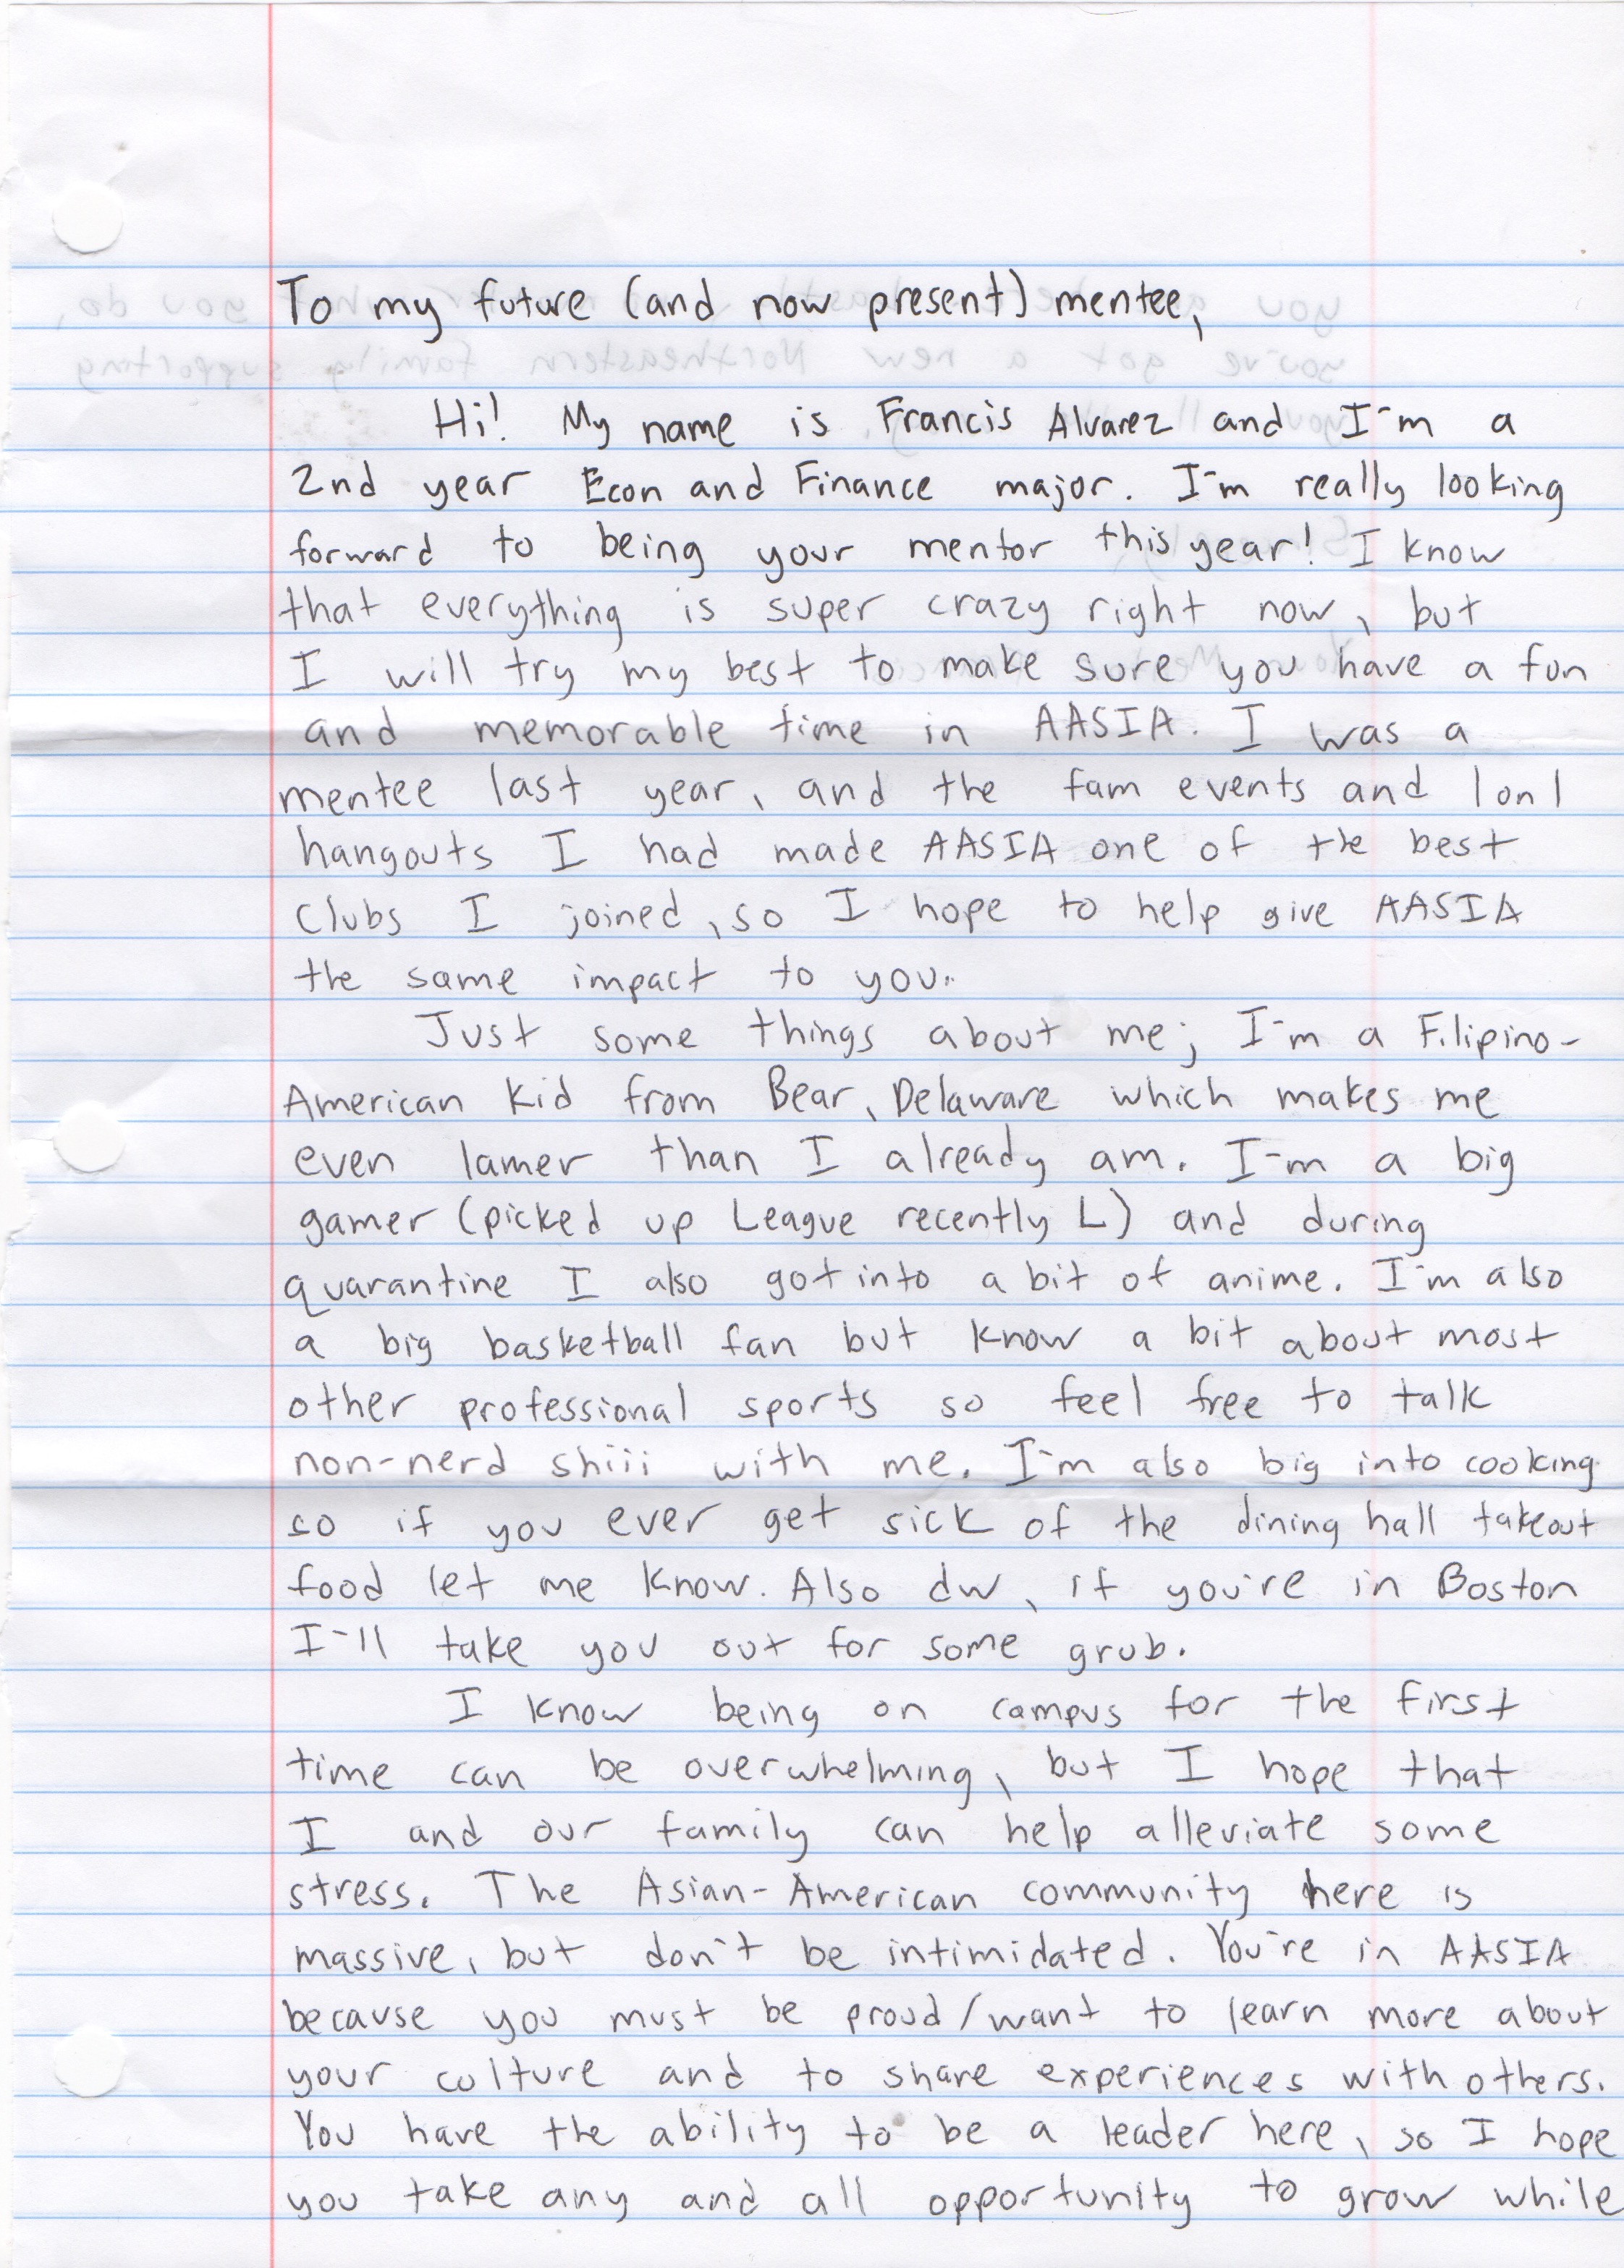 To my future (and now present) mentee,
Hi! My name is Francis Alvarez and I'm a
2nd year Econ and Finance major. I'm really looking
forward to being your mentor this year! I know
that everything is super crazy right now, but
I will try my best to make sure you have a fun
and memorable time in AASIA. I was a
mentee last year, and the fam events and 1on1
hangouts I had made AASIA one of the best
clubs I joined, so I hope to help give AASIA
the same impact to you.
Just some things about me; I'm a Filipino-
American kid from Bear, Delaware which makes me
even lamer than I already am. I'm a big
gamer (picked up League recently L) and during
quarantine I also got into a bit of anime. I'm also
a big basketball fan but know a bit about most
other professional sports so feel free to talk
non-nerd shiii with me. I'm also big into cooking
so if you ever get sick of the dining hall takeout
food let me know. Also dw, if you're in Boston
I'll take you out for some grub.
I know being on campus for the first
time can be overwhelming, but I hope that
I and our family can help alleviate some
stress. The Asian-American community here is
massive, but don't be intimidated. You're in AASIA
because you must be proud/want to learn more about
your culture and to share experiences with others.
You have the ability to be a leader here, so I hope
you take any and all opportunity to grow while